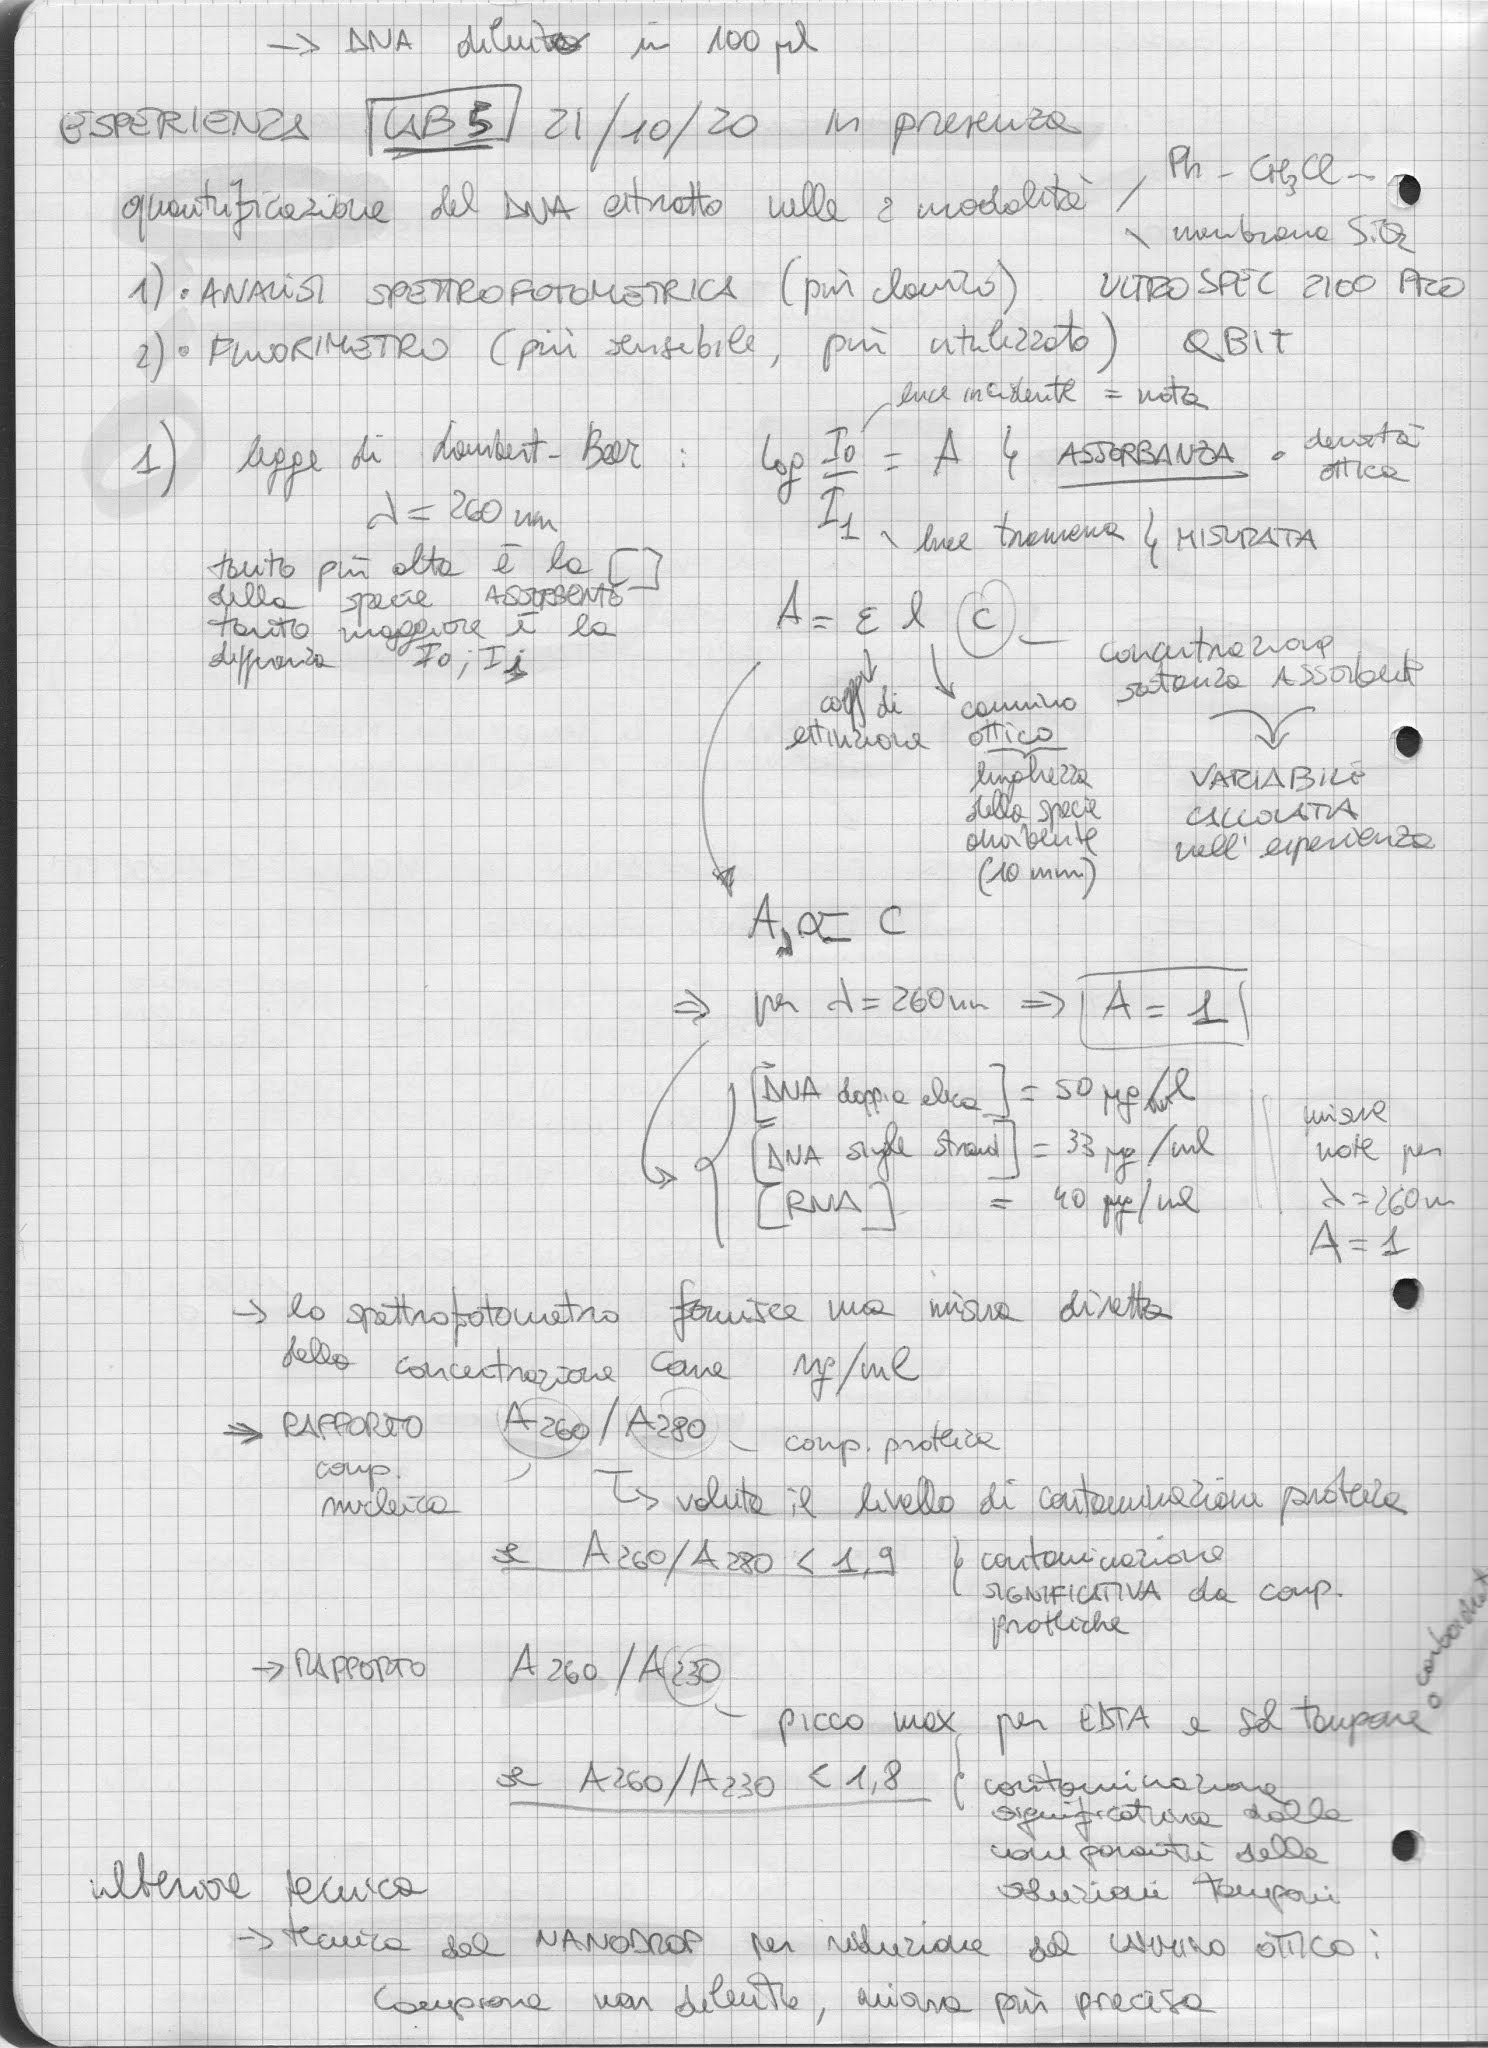 → DNA diluito in 100 µl
ESPERIENZA LAB 5 21/10/20 in presenza
quantificazione del DNA estratto nelle 2 modalità / Ph - CH3Cl -
\ membrana SiO2
1) • ANALISI SPETTROFOTOMETRICA (più classico) ULTROSPEC 2100 PRO
2) • FLUORIMETRO (più sensibile, più utilizzato) QBIT
luce incidente = nota
1) legge di Lambert-Beer : log I0/I1 = A ↳ ASSORBANZA • densità ottica
λ = 260 nm
luce trasmessa ↳ MISURATA
tanto più alta è la [ ]
della specie ASSORBENTE
tanto maggiore è la
differenza I0 ; I1
A = ε l c
concentrazione
sostanza ASSORBENTE
coeff di
estinzione
cammino
ottico
lunghezza
della specie
assorbente
(10 mm)
VARIABILE
CALCOLATA
nell'esperienza
A ∝ C
⇒ per λ = 260 nm ⇒ A = 1
[DNA doppia elica] = 50 µg/ml
[DNA single strand] = 33 µg/ml
[RNA] = 40 µg/ml
misure
note per
λ = 260 nm
A = 1
→ lo spettrofotometro fornisce una misura diretta
della concentrazione come µg/ml
⇒ RAPPORTO A260 / A280 - comp. proteica
comp.
nucleica
↳ valuta il livello di contaminazione proteica
se A260/A280 < 1,9 ↳ contaminazione
SIGNIFICATIVA da comp.
proteiche
→ RAPPORTO A260 / A230
picco max per EDTA e sol tampone o carboidrati
se A260/A230 < 1,8 { contaminazione
significativa dalle
componenti delle
soluzioni tamponi
ulteriore tecnica
→ tecnica del NANODROP per riduzione del cammino ottico :
campione non diluito, misura più precisa